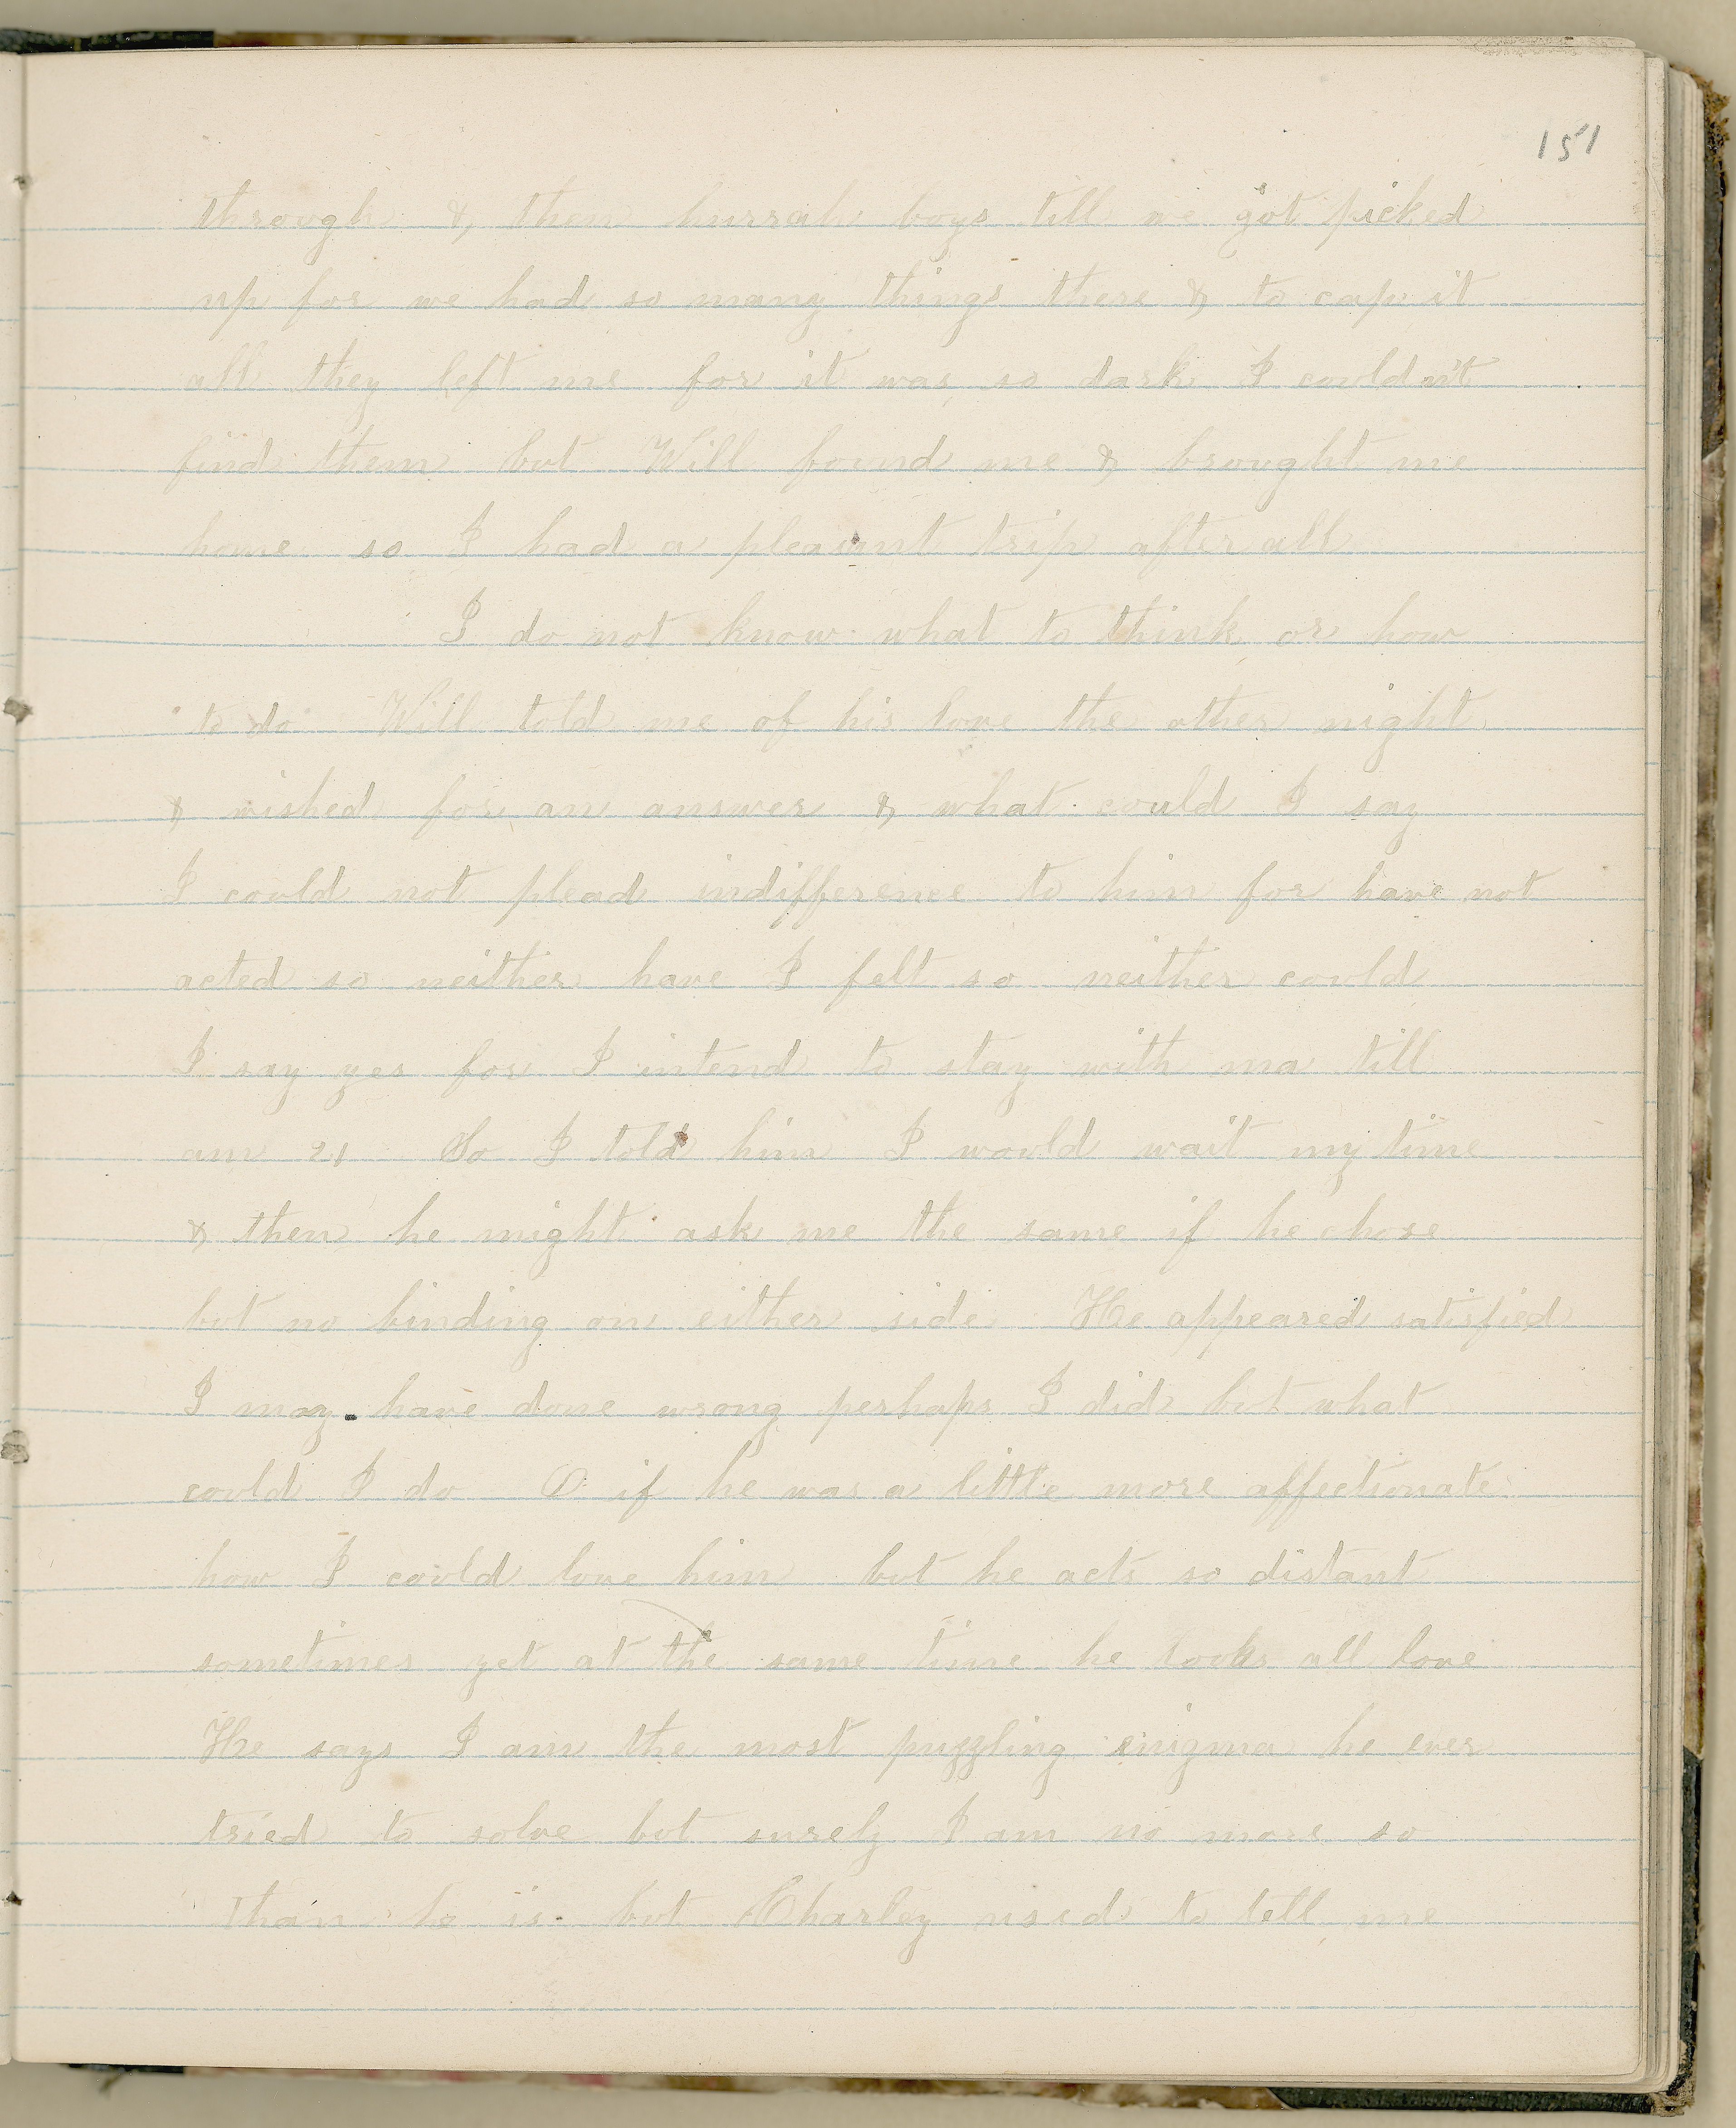 151
through & then hurrah boys till we got picked
up for we had so many things there & to cap it
all they left me for it was so dark I couldn't
find them but Will found me & brought me
home so I had a pleasant trip after all
I do not know what to think or how
to do Will told me of his love the other night
& wished for an answer & what could I say
I could not plead indifference to him for have not
acted so neither have I felt so neither could
I say yes for I intend to stay with ma till
am 21 So I told him I would wait my time
& then he might ask me the same if he chose
but no binding on either side He appeared satisfied
I may have done wrong perhaps I did but what
could I do O if he was a little more affectionate
how I could love him but he acts so distant
sometimes yet at the same time he looks all love
He says I am the most puzzling enigma he ever
tried to solve but surely I am no more so
than he is but Charley used to tell me